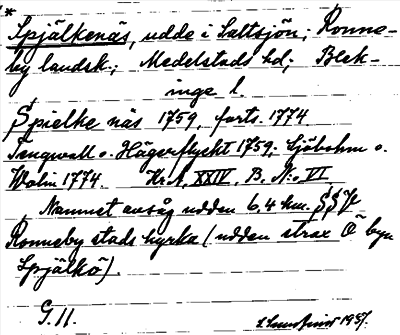 * Spjälkenäs, udde i Saltsjön; Ronne-
by landsk.; Medelstads hd; Blek-
inge l.
Spielke näs 1759, forts. 1774.
Tengwall o. Hägerflycht 1759; Sjöbohm o.
Wolin 1774. Kr. A. XXIV. B. N:o VI
Namnet avsåg udden 6,4 km. SSV
Ronneby stads kyrka (udden strax Ö byn
Spjälkö).
G. 11. 1937.